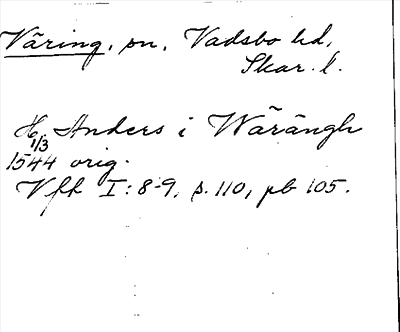 Väring, sn, Vadsbo hd,
Skar. l.
H. Anders i Wärängh
1/3
1544 orig.
Vfft I: 8-9, s. 110, pb 105.